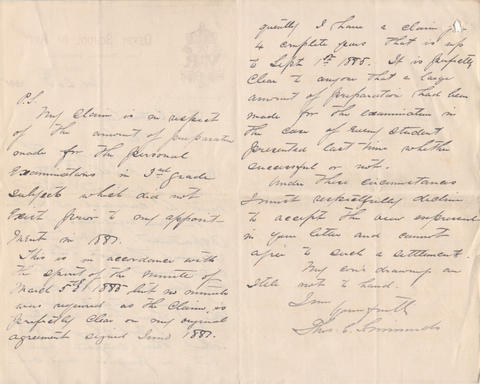 P.S.
My claim is in respect
of the amount of preparation
made for the personal
Examinations in 3rd Grade
subjects which did not
exist prior to my appoint-
ment in 1881.
This is in accordance with
the spirit of the Minute of
March 5th 1885 but no minute
was required as the claim is
perfectly clear on my original
agreement signed June 1881.
quently I have a claim for
4 complete years that is up
to Septr 1st 1885. It is perfectly
clear to anyone that a large
amount of preparation had been
made for the examination in
the case of every student
presented last time whether
successful or not.
Under these circumstances
I must respectfully decline
to accept the view expressed
in your letter and cannot
agree to such a settlement.
My own drawing on
not to hand.
I am
Yours truly
Thos. C. Simmonds